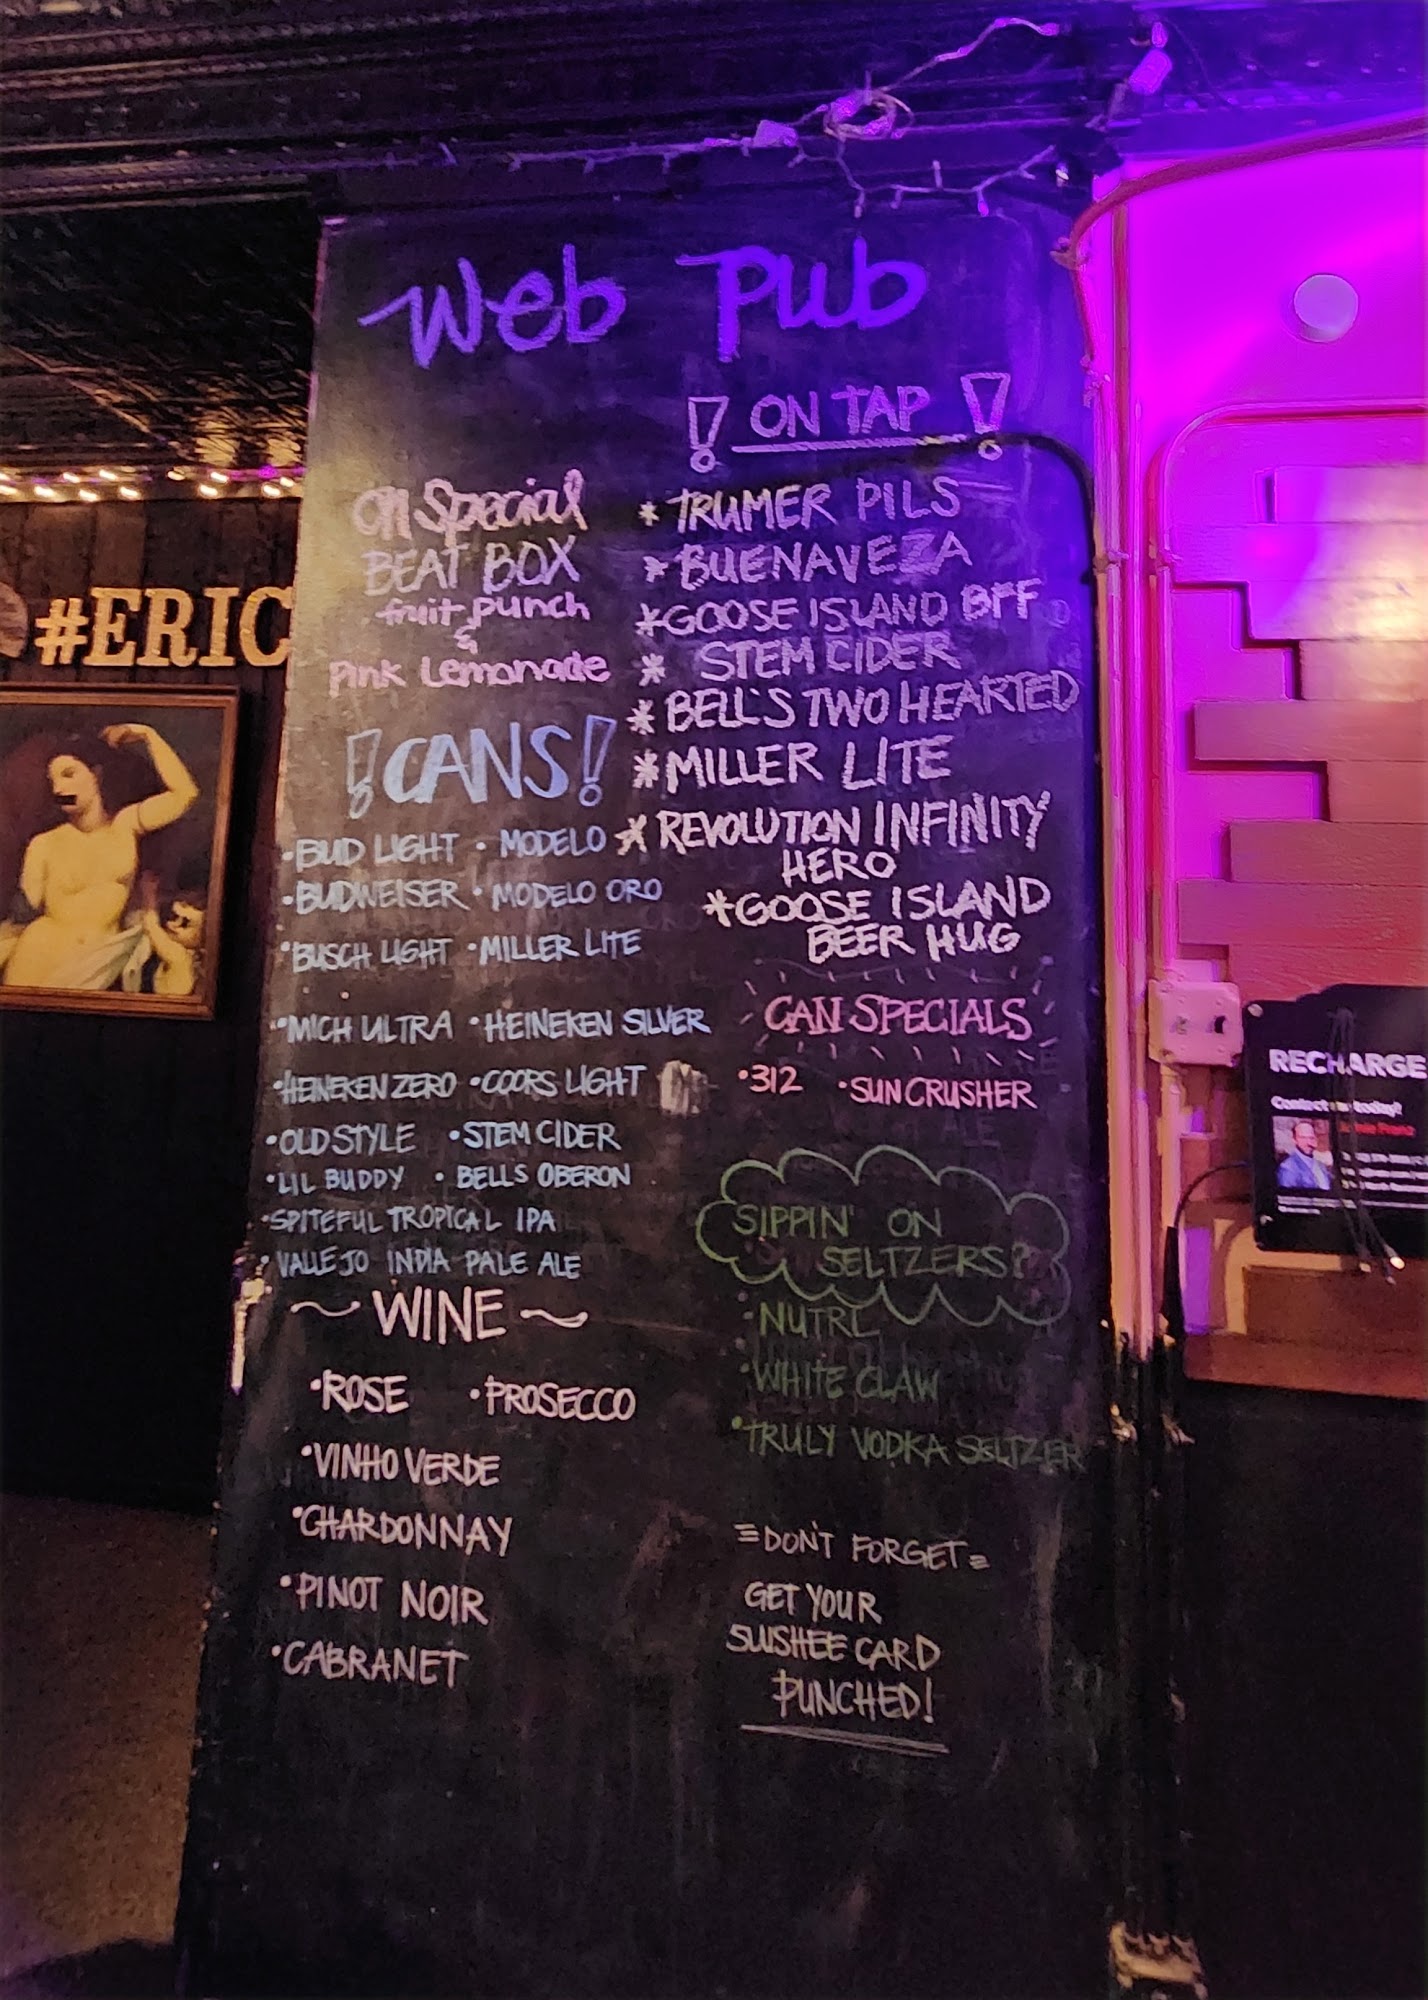 Web Pub
! ON TAP !
* TRUMER PILS
* BUENAVEZA
* GOOSE ISLAND BFF
* STEM CIDER
* BELL'S TWO HEARTED
* MILLER LITE
* REVOLUTION INFINITY
HERO
* GOOSE ISLAND
BEER HUG
CAN SPECIALS
• 312 • SUN CRUSHER
SIPPIN' ON
SELTZERS?
• NUTRL
• WHITE CLAW
• TRULY VODKA SELTZER
= DON'T FORGET =
GET YOUR
SLUSHEE CARD
PUNCHED!
On Special
BEAT BOX
fruit punch
&
Pink Lemonade
! CANS !
• BUD LIGHT • MODELO
• BUDWEISER • MODELO ORO
• BUSCH LIGHT • MILLER LITE
• MICH ULTRA • HEINEKEN SILVER
• HEINEKEN ZERO • COORS LIGHT
• OLD STYLE • STEM CIDER
• LIL BUDDY • BELLS OBERON
• SPITEFUL TROPICAL IPA
• VALLEJO INDIA PALE ALE
~ WINE ~
• ROSE • PROSECCO
• VINHO VERDE
• CHARDONNAY
• PINOT NOIR
• CABRANET
#ERIC
RECHARGE
Contact me today!